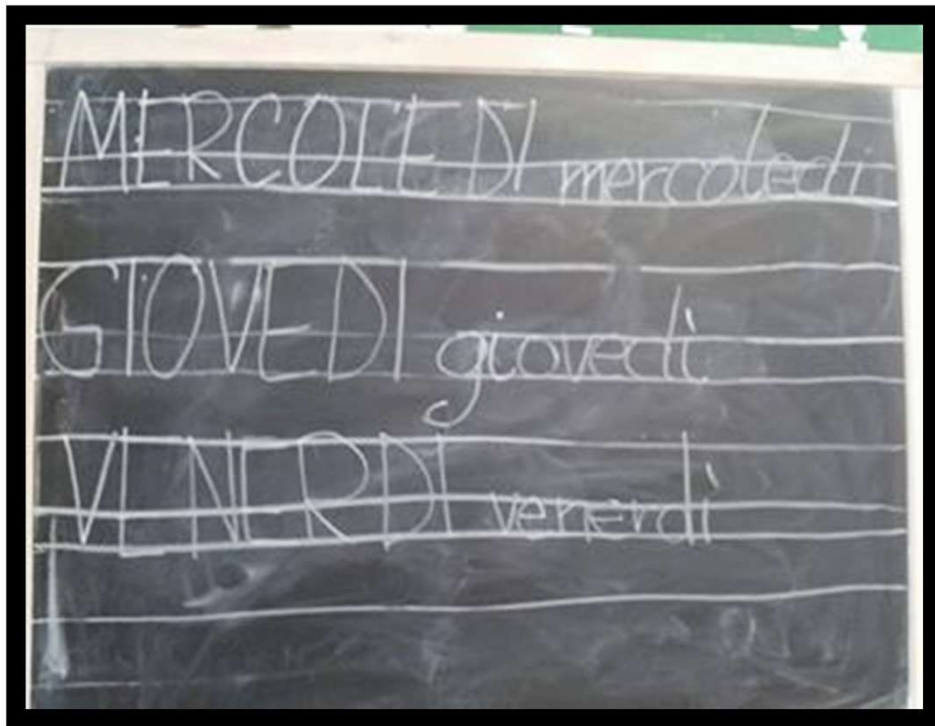 MERCOLEDI mercoledì
GIOVEDI giovedì
VENERDI venerdì